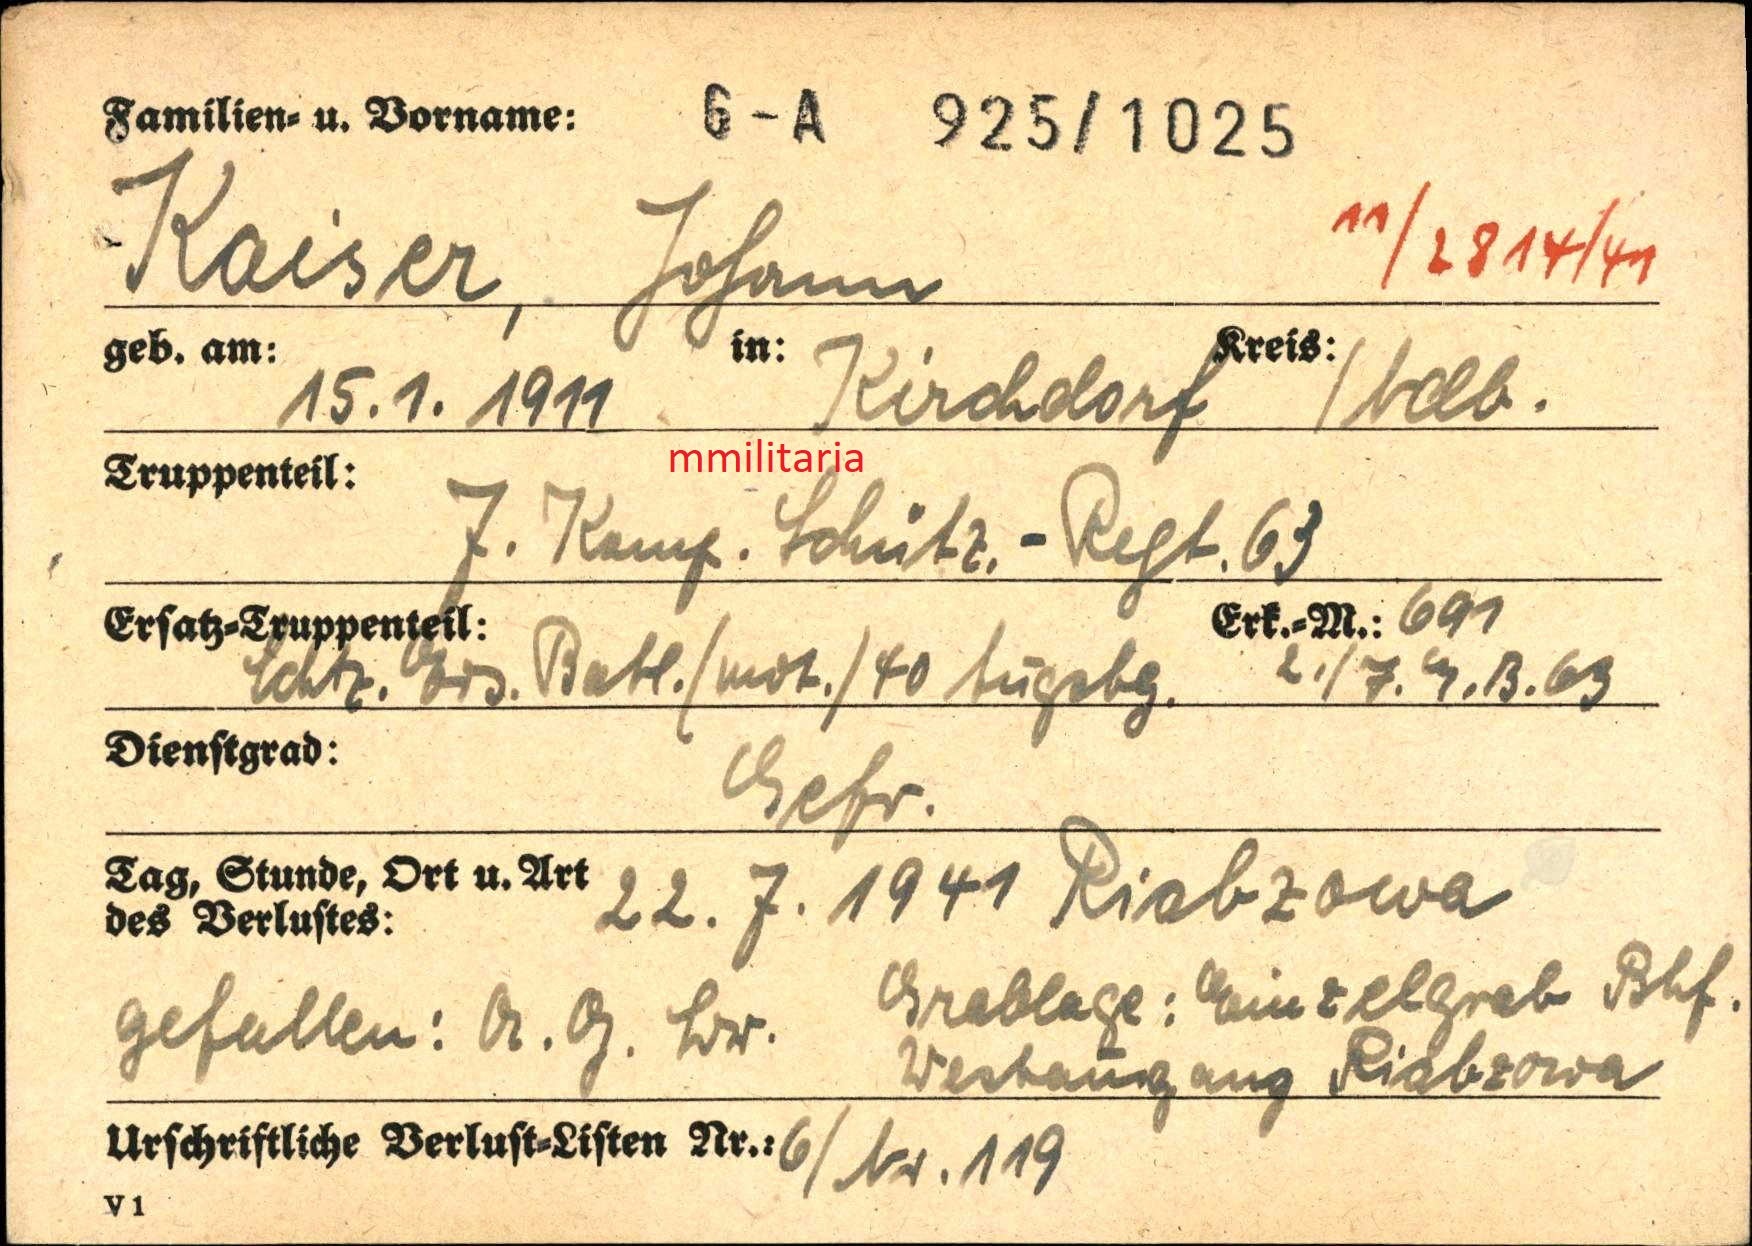 Familien- u. Vorname: G-A 925/1025
Kaiser, Johann 11/2814/41
geb. am: 15.1.1911 in: Kirchdorf Kreis:
mmilitaria
Truppenteil:
7. Komp. Schütz.-Regt. 63
Ersatz-Truppenteil: Erk.-M.: 691
Schtz. Ers. Batl./mot./40 Augsbg. 2./7. G.B. 63
Dienstgrad: Gefr.
Tag, Stunde, Ort u. Art
des Verlustes: 22.7.1941 Riabzowa
gefallen: A.G. Grablage: Einzelgrab Bhf.
Westausgang Riabzowa
Urschriftliche Verlust-Listen Nr.: 6/Nr. 119
V 1